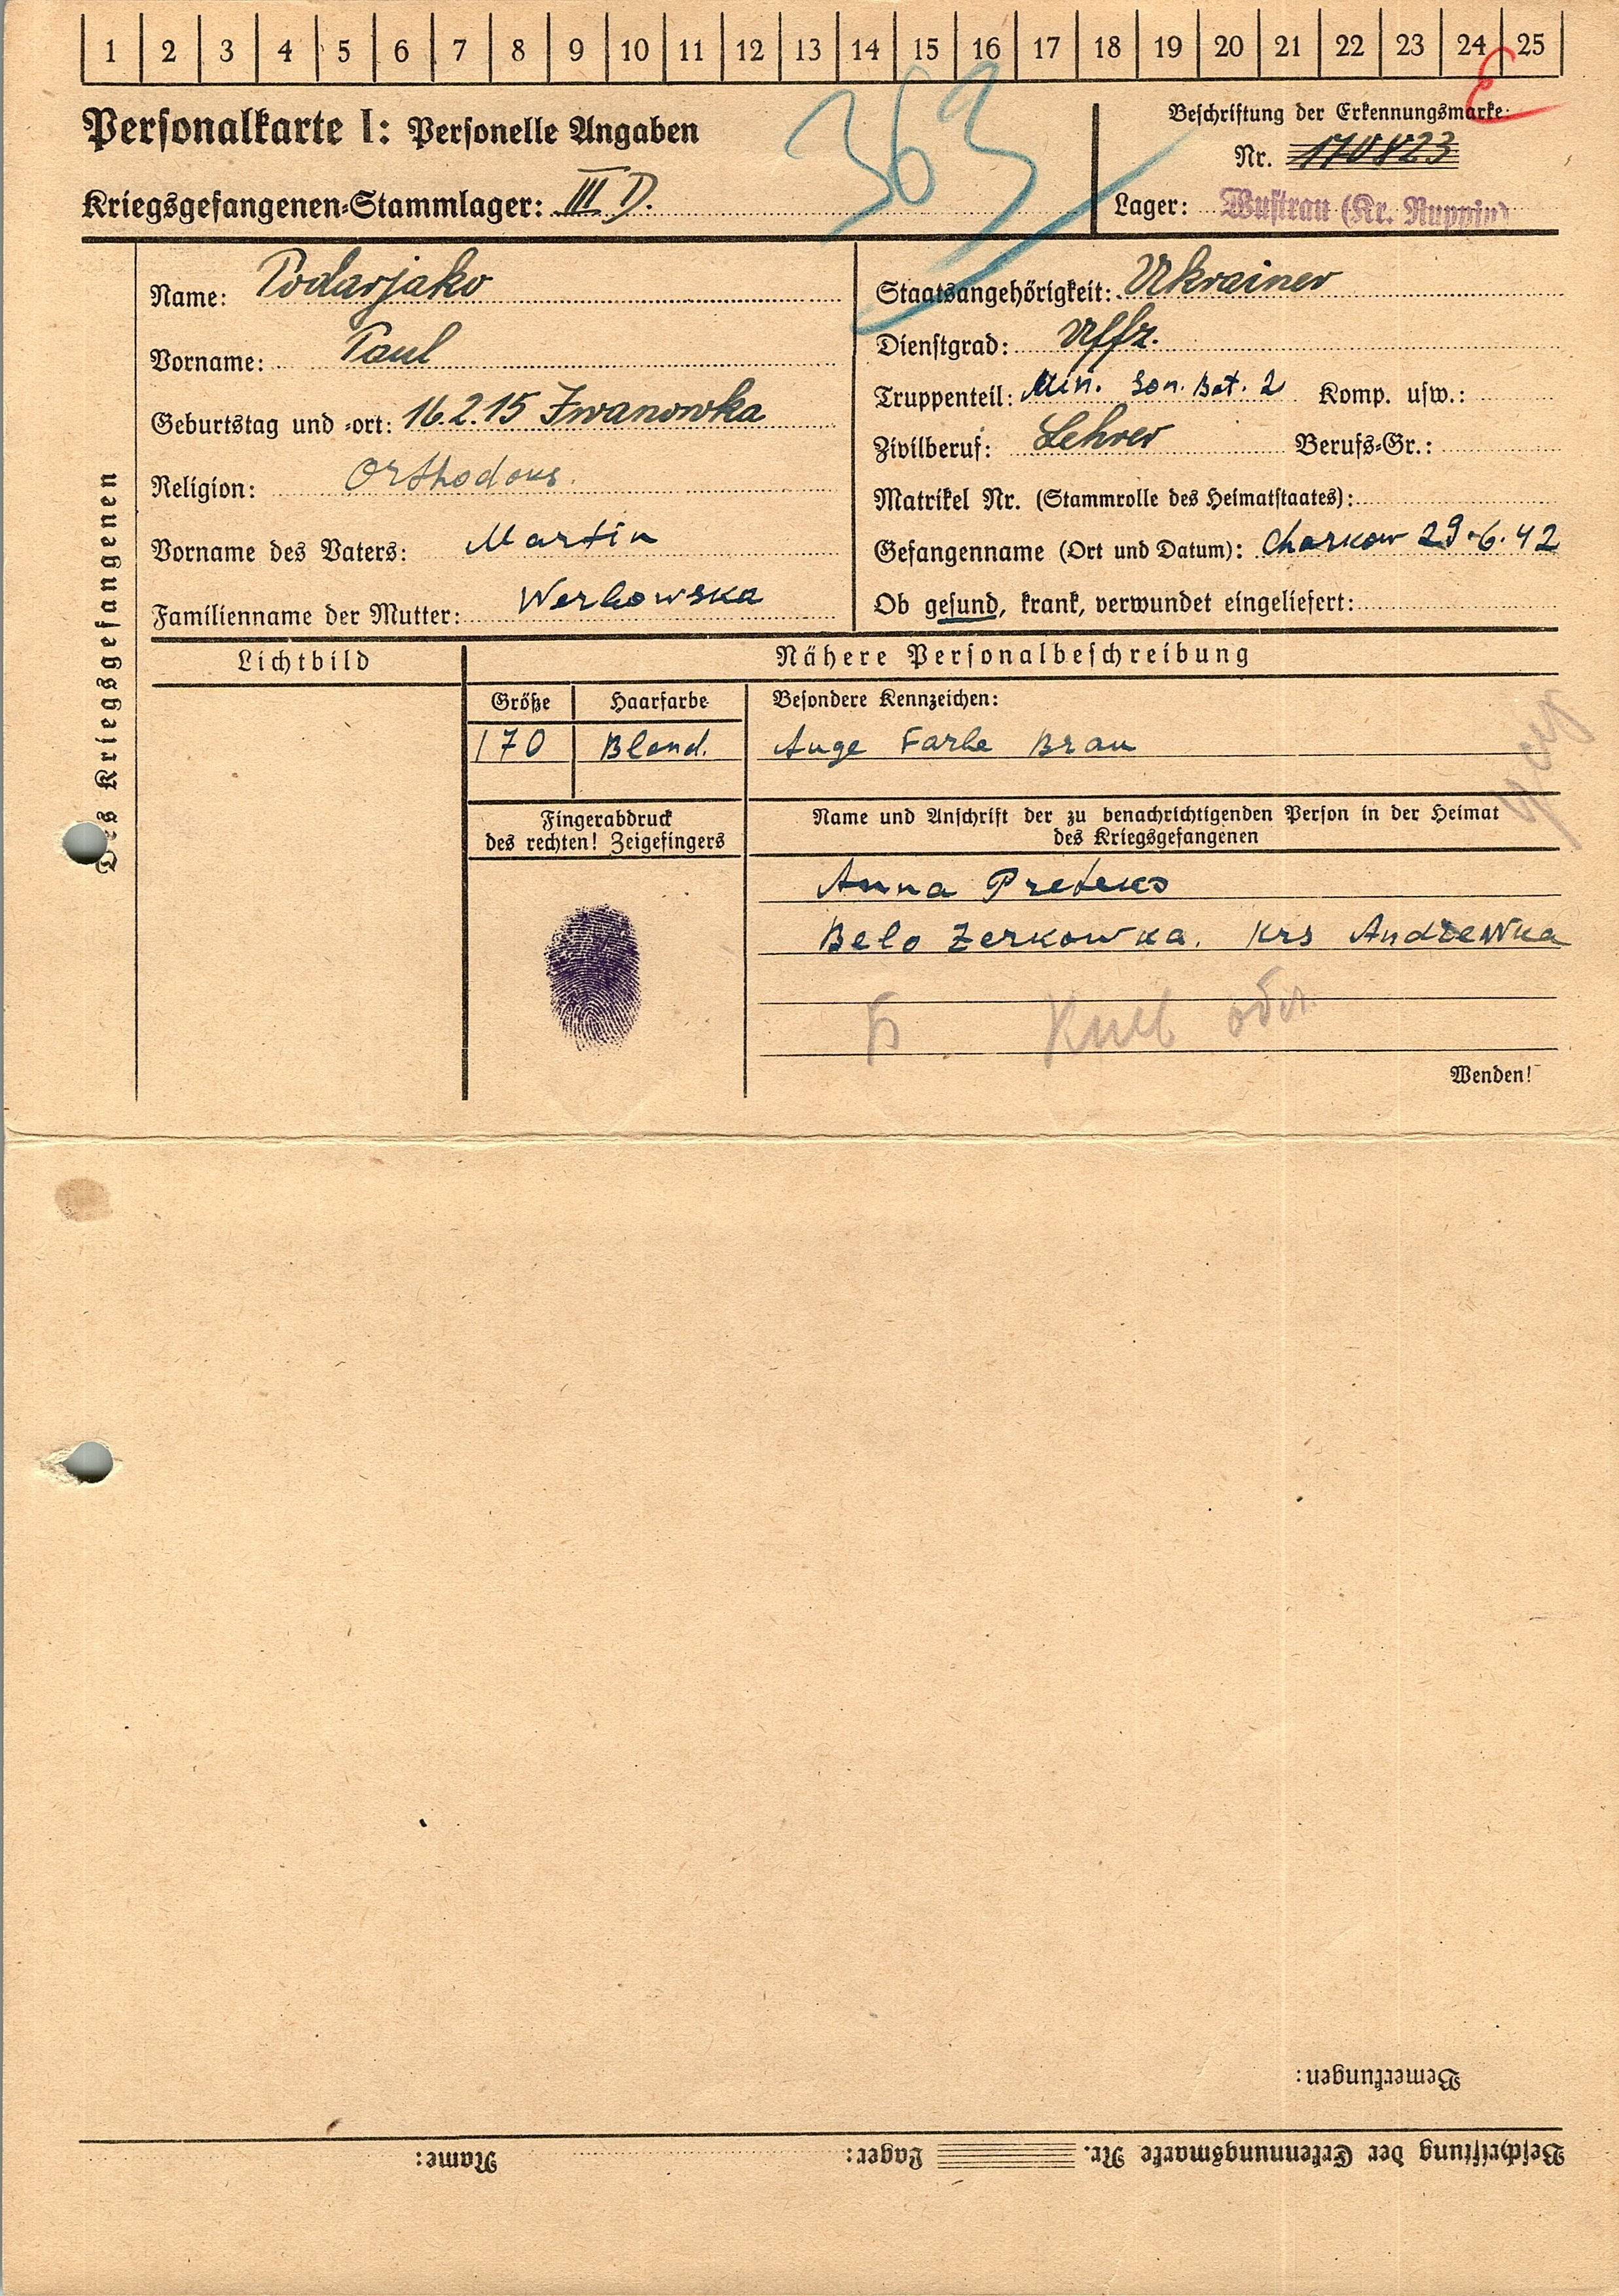 1 2 3 4 5 6 7 8 9 10 11 12 13 14 15 16 17 18 19 20 21 22 23 24 25
363
Personalkarte I: Personelle Angaben
Beschriftung der Erkennungsmarke:
Nr. 170823
Kriegsgefangenen-Stammlager: III D.
Lager: Wustrau (Kr. Ruppin)
Des Kriegsgefangenen
Name: Podarjako
Vorname: Paul
Geburtstag und -ort: 16.2.15 Iwanowka
Religion: Orthodoxs
Vorname des Vaters: Martin
Familienname der Mutter: Werbowska
Staatsangehörigkeit: Ukrainer
Dienstgrad: Uffz.
Truppenteil: Min. Son. Bat. 2 Komp. usw.:
Zivilberuf: Lehrer Berufs-Gr.:
Matrikel Nr. (Stammrolle des Heimatstaates):
Gefangenname (Ort und Datum): Charkow 29.6.42
Ob gesund, krank, verwundet eingeliefert:
Lichtbild
Nähere Personalbeschreibung
Größe Haarfarbe Besondere Kennzeichen:
170 Blond. Auge Farbe Braun
Fingerabdruck
des rechten! Zeigefingers
Name und Anschrift der zu benachrichtigenden Person in der Heimat
des Kriegsgefangenen
Anna
Belo Zerkowka. Krs Andrewka
Б Киев обл.
Wenden!
Bemerkungen:
Beschriftung der Erkennungsmarke Nr. Lager: Name: